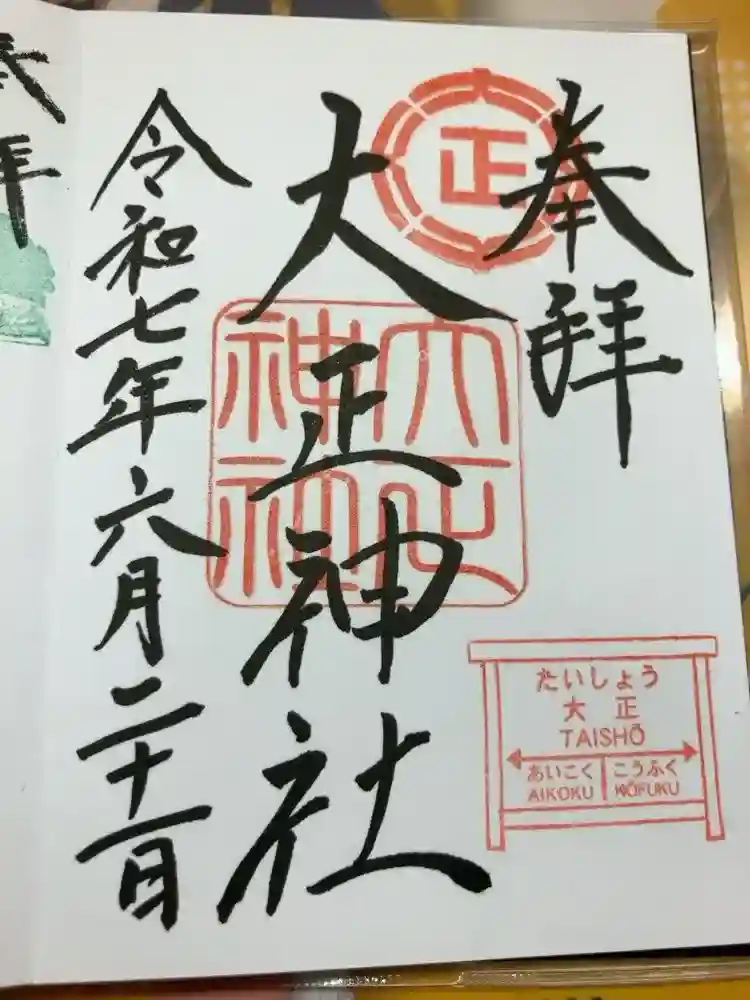 奉拝
正
大正神社
大正神社
令和七年六月二十一日
たいしょう
大正
TAISHŌ
あいこく こうふく
AIKOKU KŌFUKU
奉拝